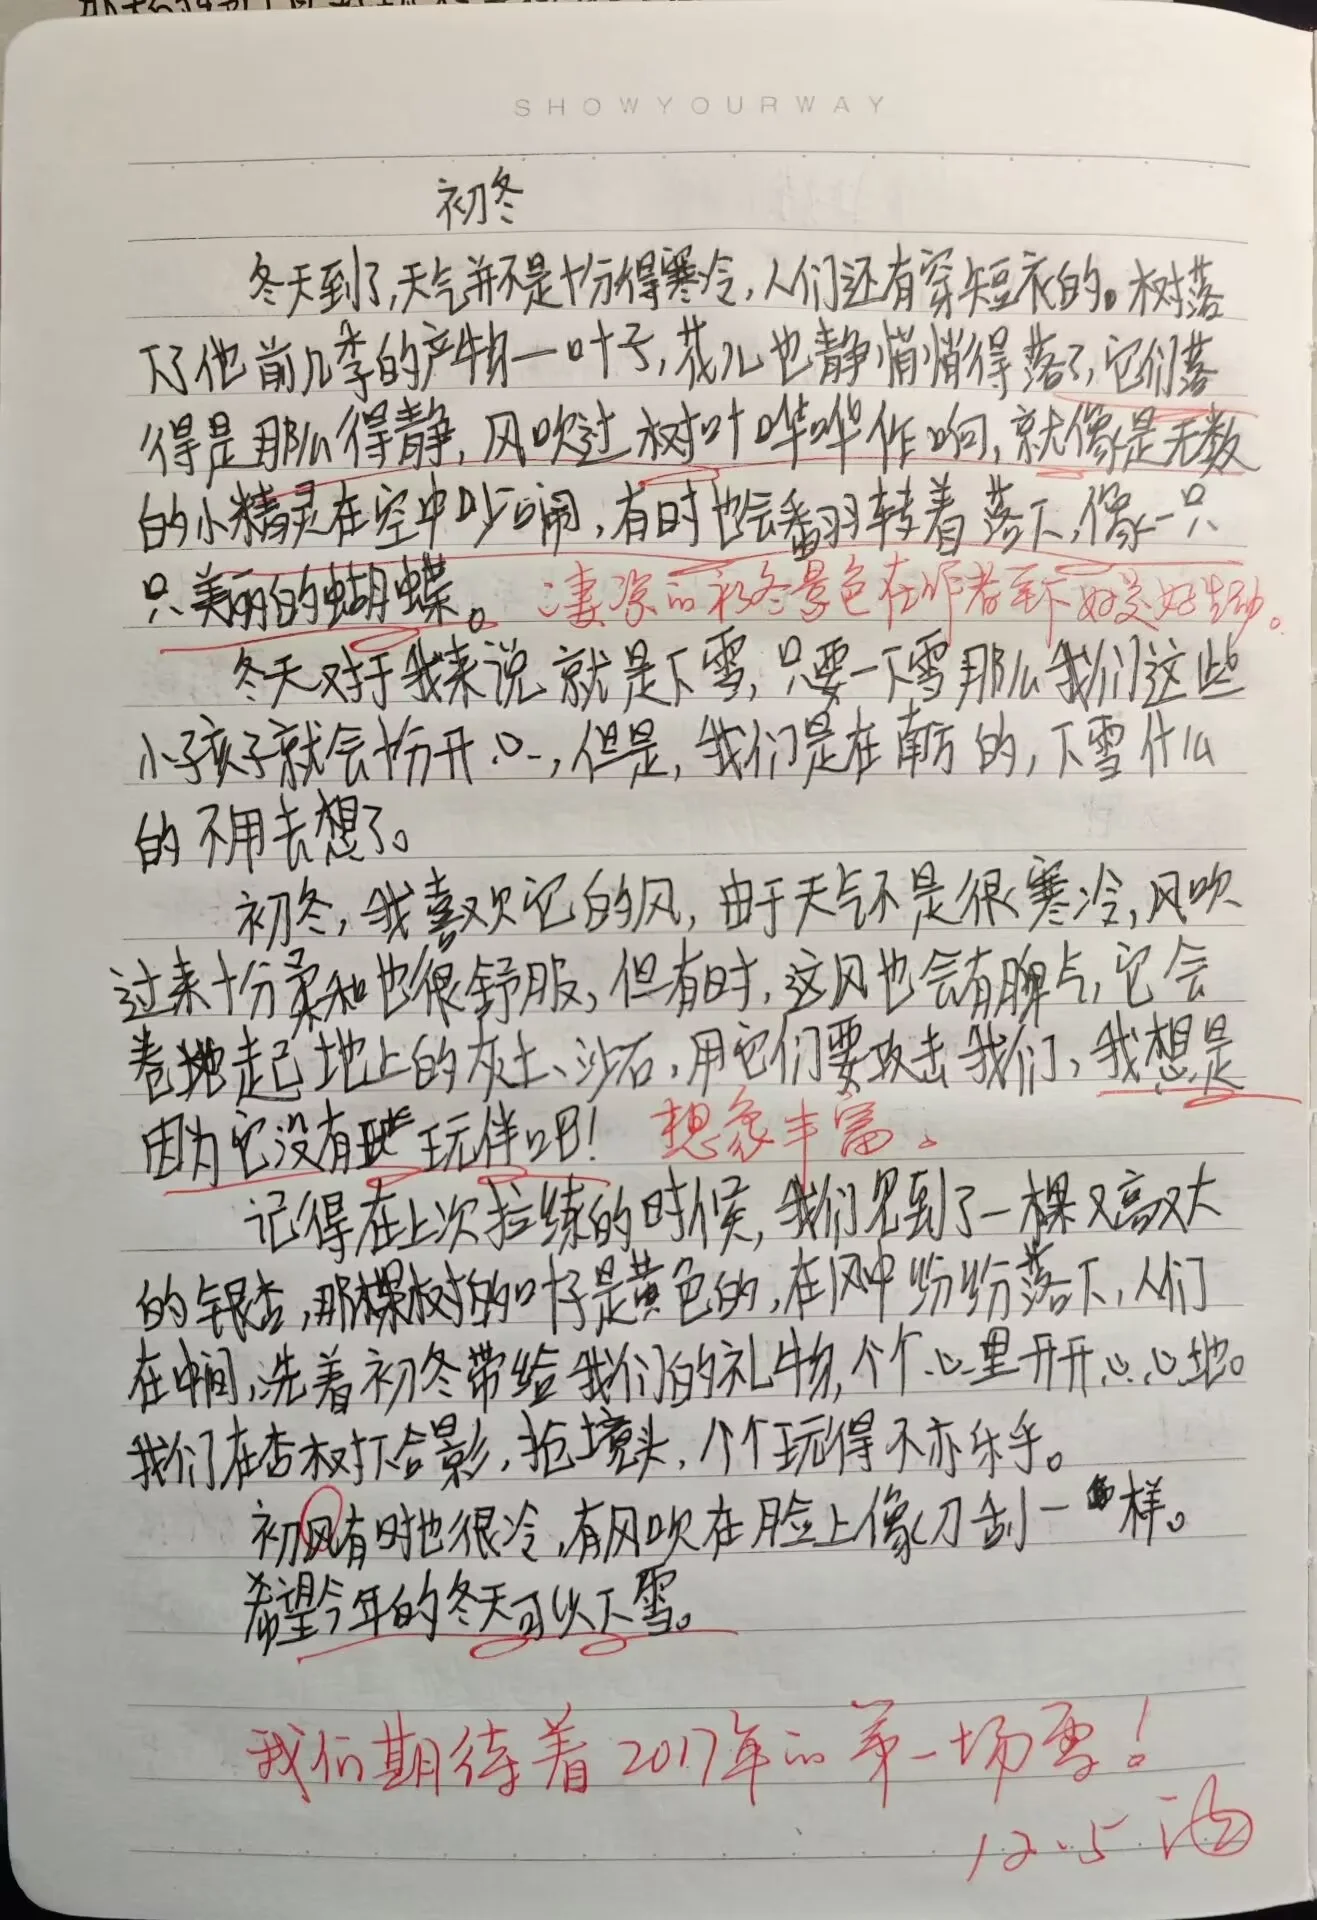 SHOWYOURWAY
初冬
冬天到了,天气并不是十分得寒冷,人们还有穿短衣的。树落
下了他前几季的产物一叶子,花儿也静悄悄得落了,它们落
得是那么得静,风吹过树叶哗哗作响,就像是无数
的小精灵在空中吵闹,有时也会翻转着落下,像一只
只美丽的蝴蝶。凄凉的初冬景色在作者笔下好美好生动。
冬天对于我来说就是下雪,只要一下雪那么我们这些
小孩子就会十分开心,但是,我们是在南方的,下雪什么
的不用去想了。
初冬,我喜欢它的风,由于天气不是很寒冷,风吹
过来十分柔和也很舒服,但有时,这风也会有脾气,它会
卷地起地上的灰土、沙石,用它们要攻击我们,我想是
因为它没有玩伴吧!想象丰富。
记得在上次拉练的时候,我们见到了一棵又高又大
的银杏,那棵树的叶子是黄色的,在风中纷纷落下,人们
在中间,洗着初冬带给我们的礼物,个个心里开开心心地。
我们在杏树下合影,抢境头,个个玩得不亦乐乎。
初风有时也很冷,有风吹在脸上像刀刮一样。
希望今年的冬天可以下雪。
我们期待着2017年的第一场雪!
12.5